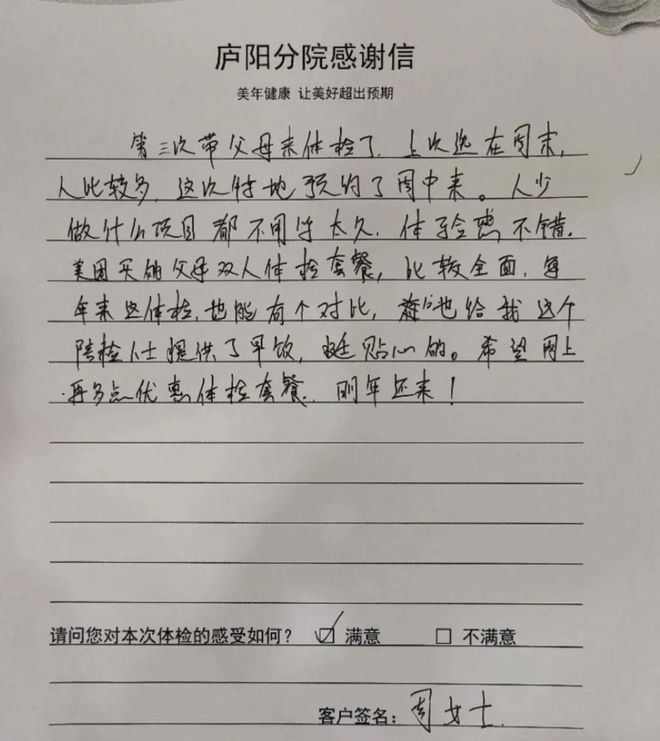 庐阳分院感谢信
美年健康 让美好超出预期
第三次带父母来体检了.上次选在周末,
人比较多,这次特地预约了周中来。人少
做什么项目都不用等太久.体验感不错.
美团买的父母双人体检套餐,比较全面,每
年来这体检,也能有个对比,也给我这个
陪检人士提供了早饭,挺贴心的。希望网上
再多点优惠体检套餐.明年还来!
请问您对本次体检的感受如何? ☑ 满意 □ 不满意
客户签名:周女士.